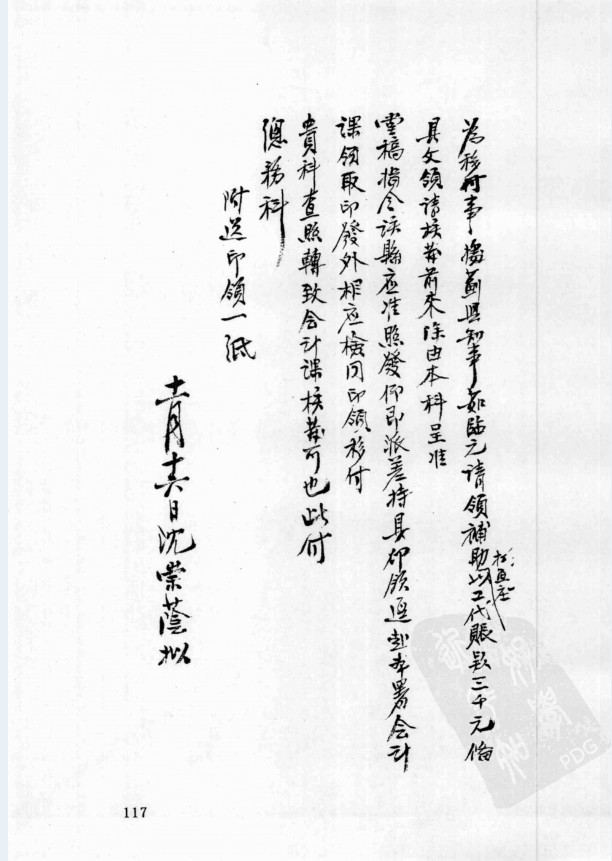 為移付事據薊縣知事茹臨元請領補助以工代賑款三千元備
具文領請核發前來除由本科呈准
堂稿指令該縣應准照發仰即派差持具印領逕赴本署會計
課領取印發外相應檢同印領移付
貴科查照轉致會計課核發可也此付
總務科
附送印領一紙
十一月十六日沈榮蔭擬
117
PDG